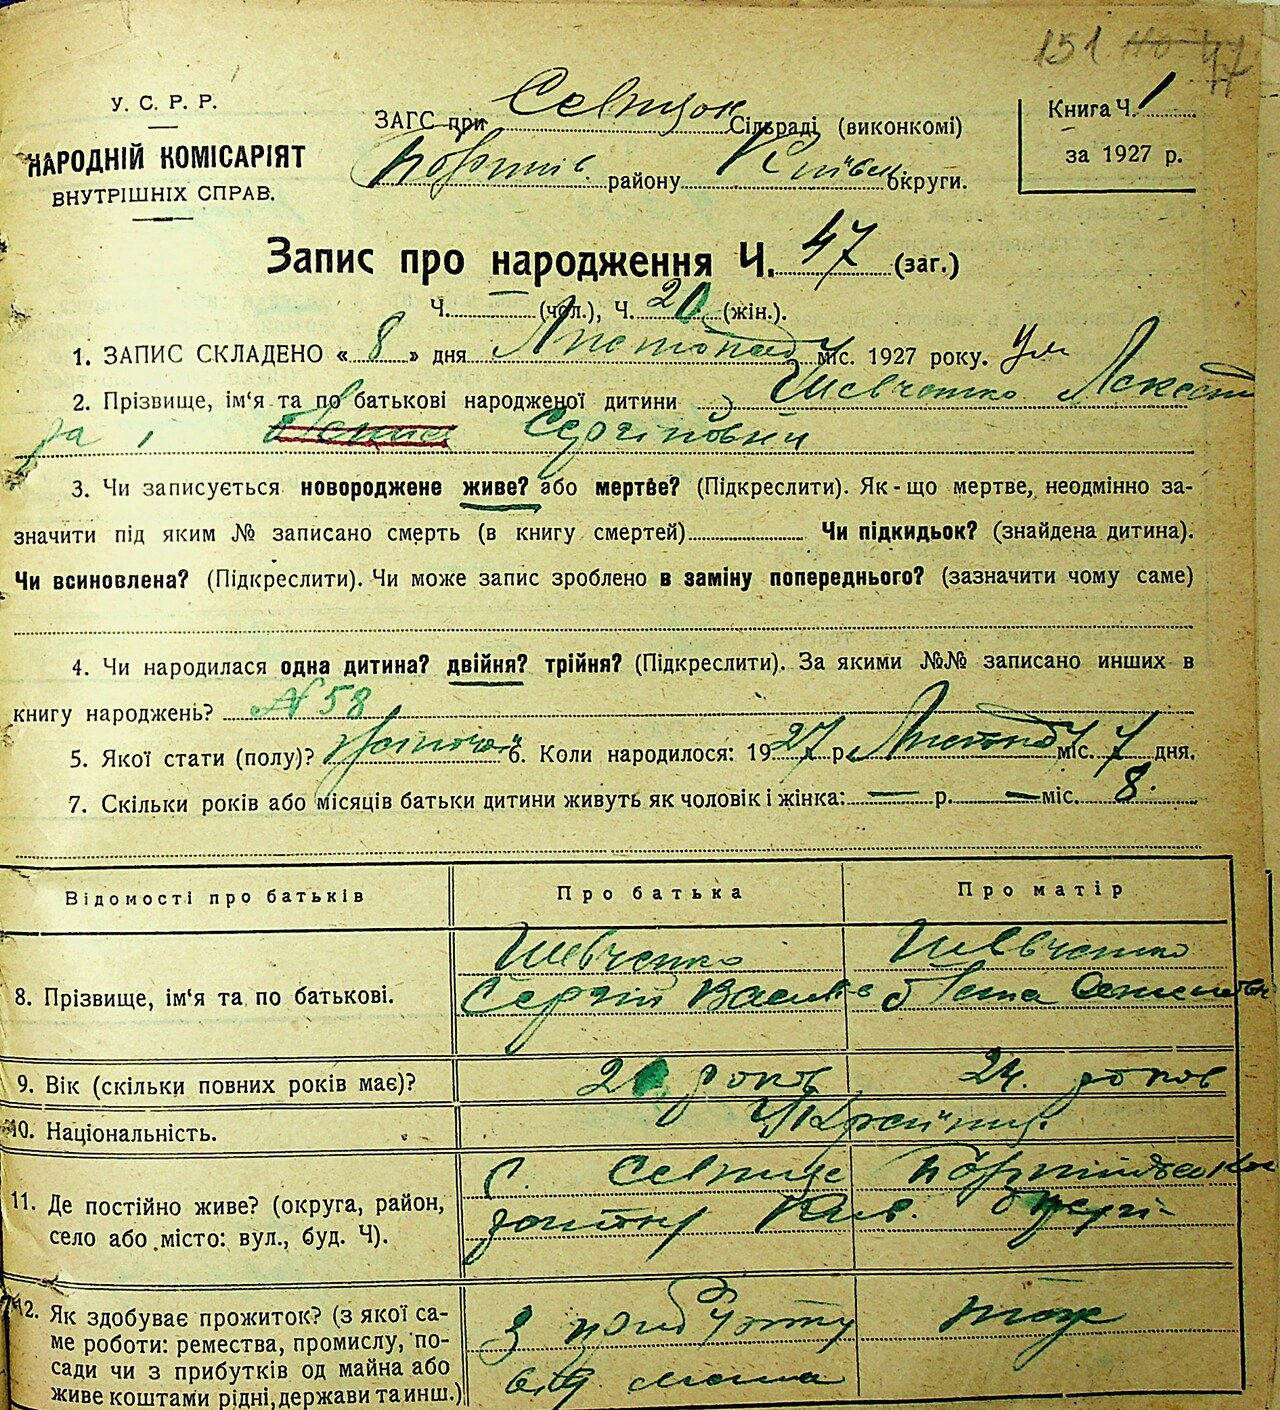 151 47
У. С. Р. Р.
НАРОДНІЙ КОМІСАРІЯТ
ВНУТРІШНІХ СПРАВ.
ЗАГС при Сільраді (виконкомі)
району Київськ округи.
Книга Ч. 1
за 1927 р.
Запис про народження Ч. 47 (заг.)
Ч. (чол.), Ч. 20 (жін.).
1. ЗАПИС СКЛАДЕНО « 8 » дня Листопад міс. 1927 року.
2. Прізвище, ім‘я та по батькові народженої дитини Шевченко
Сергіповни
3. Чи записується новороджене живе? або мертве? (Підкреслити). Як-що мертве, неодмінно за-
значити під яким № записано смерть (в книгу смертей) Чи підкидьок? (знайдена дитина).
Чи всиновлена? (Підкреслити). Чи може запис зроблено в заміну попереднього? (зазначити чому саме)
4. Чи народилася одна дитина? двійня? трійня? (Підкреслити). За якими №№ записано инших в
книгу народжень? № 58
5. Якої стати (полу)? 6. Коли народилося: 1927 р. Листопад міс. 7 дня.
7. Скільки років або місяців батьки дитини живуть як чоловік і жінка: — р. — міс. 8.
Відомості про батьків Про батька Про матір
8. Прізвище, ім'я та по батькові.
Шевченко Шевченко
Сергій Васильов
9. Вік (скільки повних років має)? років 24. років
10. Національність.
11. Де постійно живе? (округа, район,
село або місто: вул., буд. Ч).
с.
12. Як здобуває прожиток? (з якої са-
ме роботи: ремества, промислу, по-
сади чи з прибутків од майна або
живе коштами рідні, держави та инш.)
з прибутку тож
від майна